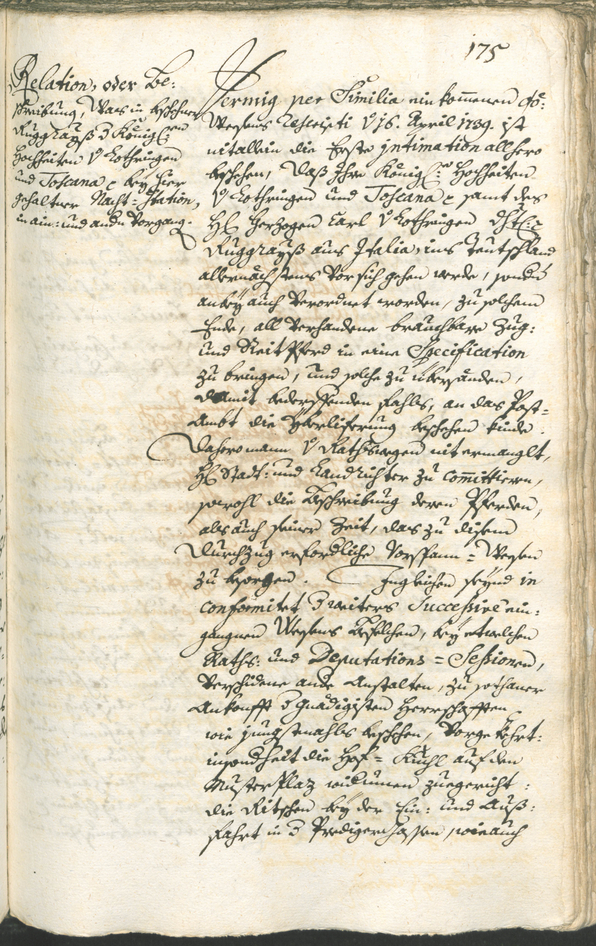 175
Relation, oder Be:
schreibung, was in beschehener
Ruggrayß d Königl:en
Hochheiten v Lothringen
und Toscana bey hier
gehaltner Nacht-Station,
in ain: und andn Vorgang.
Vermig per Similia einkommenen
Wesens Rescripti v 16. April 1739. ist
nit allein die Erste intimation allhero
beschehen, daß Ihre Königl: Hochheiten
v Lothringen und Toscana samt des
H: Herzogen Carl v Lothringen
Ruggrayß aus Italia, ins Teutschland
allernächstens vor sich gehen werde, sondern
anbey auch verordnet worden, zu solchem
Ende, all verhandene brauchbare Zug:
und Reit Pferd in eine Specification
zu bringen, und solche zu übersänden,
damit bederffenden fahls, an das Post-
Ambt die Yberliferung beschehen kinde.
Dahero mann v Rathswegen nit ermanglt,
H: Stadt: und Landrichter zu committiern,
sowohl die Beschreibung deren Pferden,
als auch seiner Zeit, das zu disem
Durchzug erfordliche Vorspann-Wesen
zu besorgen. Ingleichen seynd in
conformitet d weiters Successive ein:
gangnen Wesens Befelchen, bey etwelchen
Raths: und Deputations-Sessionen,
verschidene ande Anstalten, zu sothaner
Ankonfft d gnädigisten Herrschafften,
wie jungstmahls beschehen, vorgekehrt:
insonderheit die Hof-Kuchl auf den
Musterplaz widerumen zuegericht:
die Ritschen bey der Ein: und Auß:
fahrt in d Prediger Gassen, wie auch